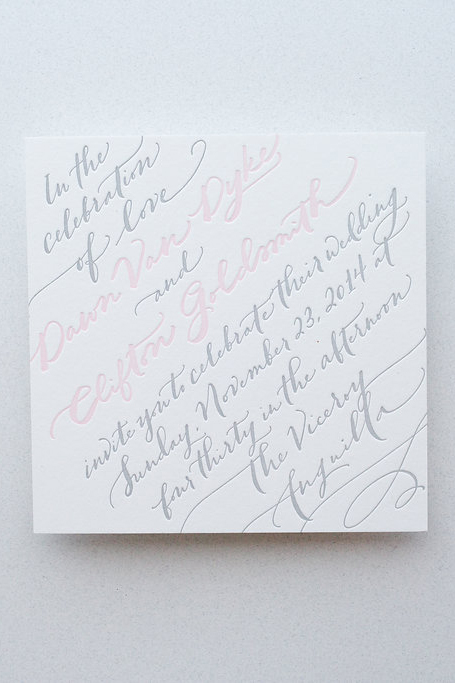 In the
celebration
of love
Dawn Van Dyke
and
Clifton Goldsmith
invite you to celebrate their wedding
Sunday, November 23, 2014 at
four thirty in the afternoon
The Viceroy
Anguilla